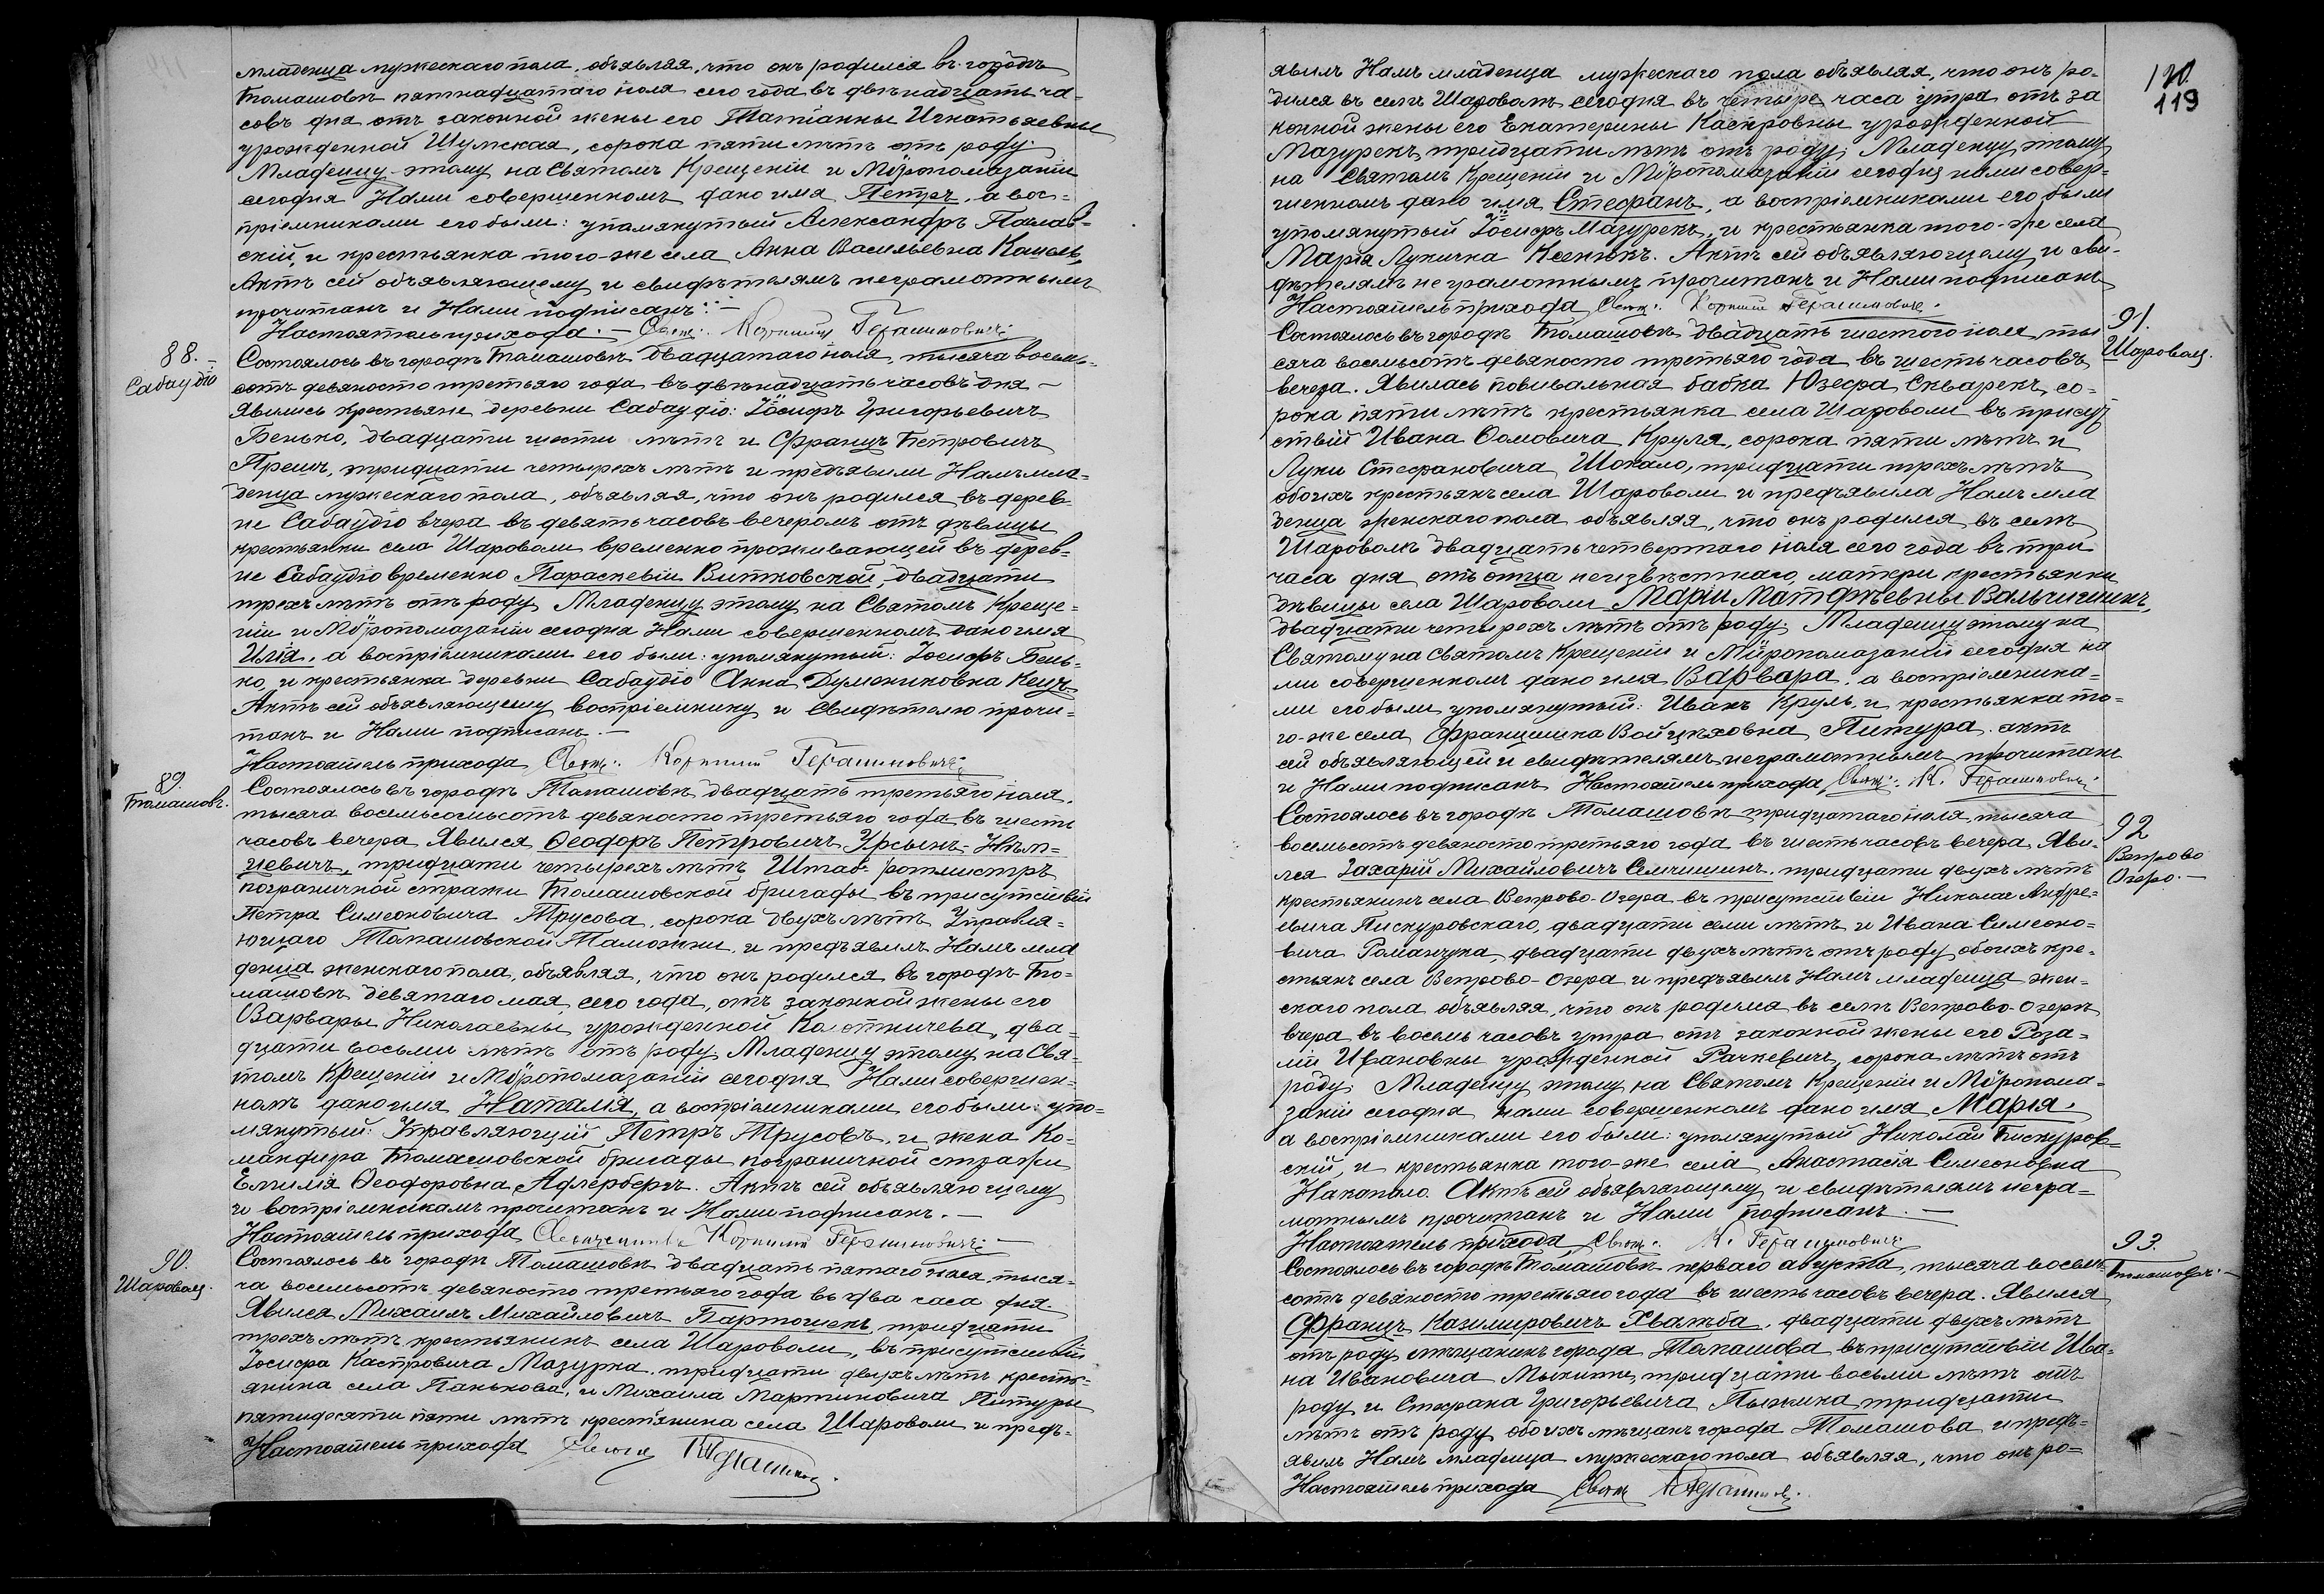 младенца мужескаго пола, объявляя, что онъ родился въ городѣ
Томашовѣ пятнадцатаго іюля сего года въ двѣнадцать ча-
совъ дня отъ законной жены его Татіанны Игнатьевны
урожденной Шумская, сорока пяти лѣтъ отъ роду.
Младенцу этому на Святомъ Крещеніи и Мѵропомазаніи
сегодня Нами совершенномъ дано имя Петръ, а вос-
пріемниками его были: упомянутый Александръ Паслав-
скій, и крестьянка того-же села Анна Васильевна
Актъ сей объявляющему и свидѣтелямъ неграмотнымъ
прочитанъ и Нами подписанъ: —
Настоятель прихода. — Свящ: Корнилій Герасимовичъ
88. —
Сабаудіо
Состоялось въ городѣ Томашовѣ двадцатаго іюля, тысяча восемь-
сотъ девяносто третьяго года въ двѣнадцать часовъ дня —
Явились крестьяне деревни Сабаудіо: Іосифъ Григорьевичъ
Бенько, двадцати шести лѣтъ и Францъ Петровичъ
Прешъ, тридцати четырехъ лѣтъ и предъявили Намъ мла-
денца мужескаго пола, объявляя, что онъ родился въ дерев-
не Сабаудіо вчера въ девять часовъ вечеромъ отъ дѣвицы
крестьянки села Шароволи временно проживающей въ дерев-
не Сабаудіо временно Параскевіи Витковской, двадцати
трехъ лѣтъ отъ роду Младенцу этому на Святомъ Креще-
ніи и Мѵропомазаніи сегодня Нами совершенномъ дано имя
Илія, а воспріемниками его были: упомянутый: Іосифъ Бень-
ко, и крестьянка деревни Сабаудіо Анна Думениковна Кецъ
Актъ сей объявляющему воспріемнику и Свидѣтелю прочи-
танъ и Нами подписанъ. —
Настоятель прихода Свящ: Корнилій Герасимовичъ
89.
Томашовъ.
Состоялось въ городѣ Томашовѣ двадцать третьяго іюля,
тысяча восемьсомьсотъ девяносто третьяго года въ шесть
часовъ вечера Явился Ѳеодоръ Петровичъ Урсынъ-Нѣм-
цевичъ, тридцати четырехъ лѣтъ Штаб: ротмистръ
пограничной стражи Томашовской бригады въ присутствіи
Петра Симеоновича Трусова, сорока двухъ лѣтъ Управля-
ющаго Томашовской Таможни, и предъявилъ Намъ мла
денца женскаго пола, объявляя, что онъ родился въ городѣ То-
машовѣ девятаго мая, сего года, отъ законной жены его
Варвары Николаевны урожденной два-
дцати восьми лѣтъ отъ роду Младенцу этому на Свя-
томъ Крещеніи и Мѵропомазаніи сегодня Нами совершен-
номъ дано имя Наталія, а воспріемниками его были: упо-
мянутый: Управляющій Петръ Трусовъ, и жена Ко-
мандира Томашовской бригады пограничной стражи
Емилія Ѳеодоровна Афлербергъ. Актъ сей объявляющему
и воспріемникамъ прочитанъ и Нами подписанъ. —
Настоятель прихода Священникъ Корнилій Герасимовичъ —
90.
Шаровоц.
Состоялось въ городѣ Томашовѣ двадцать пятаго іюля, тыся-
ча восемьсотъ девяносто третьяго года въ два часа дня.
Явился Михаилъ Михайловичъ Партошекъ, тридцати
трехъ лѣтъ крестьянинъ села Шароволи, въ присутствіи
Іосифа Каспровича Мазурка, тридцати двухъ лѣтъ кресть-
янина села Панькова, и Михаила Мартиновича Питуры
пятидесяти пяти лѣтъ крестьянина села Шароволи и предъ-
Настоятель прихода
120
119
явилъ Намъ младенца мужескаго пола объявляя, что онъ ро-
дился въ селѣ Шароволѣ сегодня въ четыре часа утра отъ за
конной жены его Екатерины Каспровны урожденной
Мазурекъ, тридцати лѣтъ отъ роду. Младенцу этому
на Святомъ Крещеніи и Мѵропомазаніи сегодня нами совер-
шенномъ дано имя Стефанъ, а воспріемниками его были
упомянутый Іосифъ Мазурекъ, и крестьянка того-же села
Марія Лукична Ксенюкъ. Актъ сей объявляющему и сви-
дѣтелямъ неграмотнымъ прочитанъ и Нами подписанъ
Настоятель прихода Свящ: Корнилій Герасимовичъ.
91.
Шаровоц.
Состоялось въ городѣ Томашовѣ двадцать шестого іюля, ты
сяча восемьсотъ девяносто третьяго года въ шесть часовъ
вечера. Явилась повивальная бабка Юзефа Скварекъ, со-
рока пяти лѣтъ крестьянка села Шароволи въ присут
ствіи Ивана Ѳомовича Круля, сорока пяти лѣтъ и
Луки Стефановича Шокало, тридцати трехъ лѣтъ
обоихъ крестьянъ села Шароволи и предъявила Намъ мла
денца женскаго пола объявляя, что онъ родился въ селѣ
Шароволѣ двадцать четвертого іюля сего года въ три
часа дня отъ отца неизвѣстнаго, матери крестьянки
дѣвицы села Шароволи Маріи Матфѣевны Вальчишинъ,
двадцати четырехъ лѣтъ отъ роду. Младенцу этому на
Святому на Святомъ Крещеніи и Мѵропомазаніи сегодня на
ми совершенномъ дано имя Варвара, а воспріемника-
ми его были упомянутый: Иванъ Круль, и крестьянка то-
го-же села Францишка Войцѣховна Питура. актъ
сей объявляющей и свидѣтелямъ неграмотнымъ прочитанъ
и Нами подписанъ Настоятель прихода Свящ: К. Герасимовичъ
92
Вепрово
Озеро. —
Состоялось въ городѣ Томашовѣ тридцатаго іюля, тысяча
восемьсотъ девяносто третьяго года въ шесть часовъ вечера. Яви-
лся Захарій Михайловичъ Семчишинъ, тридцати двухъ лѣтъ
крестьянинъ села Вепрово-Озера въ присутствіи Николая Андре-
евича Пискуровскаго, двадцати семи лѣтъ и Ивана Симеоно-
вича Романчука, двадцати двухъ лѣтъ отъ роду, обоихъ кре-
стьянъ села Вепрово-Озера и предъявилъ Намъ младенца жен-
скаго пола объявляя, что онъ родился въ селѣ Вепрово-Озерѣ
вчера въ восемь часовъ утра отъ законной жены его Роза-
ліи Ивановны урожденной Рачкевичъ, сорока лѣтъ отъ
роду. Младенцу этому на Святомъ Крещеніи и Мѵропома-
заніи сегодня нами совершенномъ дано имя Марія,
а воспріемниками его были: упомянутый Николай Пискуров-
скій, и крестьянка того-же села Анастасія Симеоновна
Наконало. Актъ сей объявляющему и свидѣтелямъ негра-
мотнымъ прочитанъ и Нами подписанъ. —
Настоятель прихода Свящ: К. Герасимовичъ
93.
Томашовъ. —
Состоялось въ городѣ Томашовѣ перваго августа, тысяча восемь-
сотъ девяносто третьяго года въ шесть часовъ вечера. Явился
Францъ Казимировичъ Хватьба, двадцати двухъ лѣтъ
отъ роду мѣщанинъ города Томашова въ присутствіи Ива-
на Ивановича Микиты, тридцати восьми лѣтъ отъ
роду и Стефана Григорьевича Пыжика тридцати
лѣтъ отъ роду обоихъ мѣщанъ города Томашова и предъ-
явилъ Намъ младенца мужескаго пола объявляя, что онъ ро-
Настоятель прихода Свящ